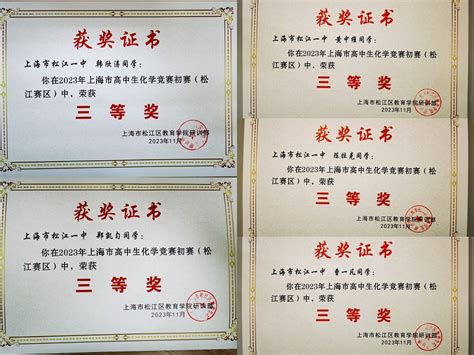 获奖证书
上海市松江一中 韩欣涛同学：
你在2023年上海市高中生化学竞赛初赛（松
江赛区）中，荣获
三等奖
上海市松江区教育学院研训部
2023年11月
获奖证书
上海市松江一中 郑凯匀同学：
你在2023年上海市高中生化学竞赛初赛（松
江赛区）中，荣获
三等奖
上海市松江区教育学院研训部
2023年11月
获奖证书
上海市松江一中 黄中雅同学：
你在2023年上海市高中生化学竞赛初赛（松
江赛区）中，荣获
三等奖
上海市松江区教育学院研训部
2023年11月
获奖证书
上海市松江一中 同学：
你在2023年上海市高中生化学竞赛初赛（松
江赛区）中，荣获
三等奖
上海市松江区教育学院研训部
2023年11月
获奖证书
上海市松江一中 曹一凡同学：
你在2023年上海市高中生化学竞赛初赛（松
江赛区）中，荣获
三等奖
上海市松江区教育学院研训部
2023年11月